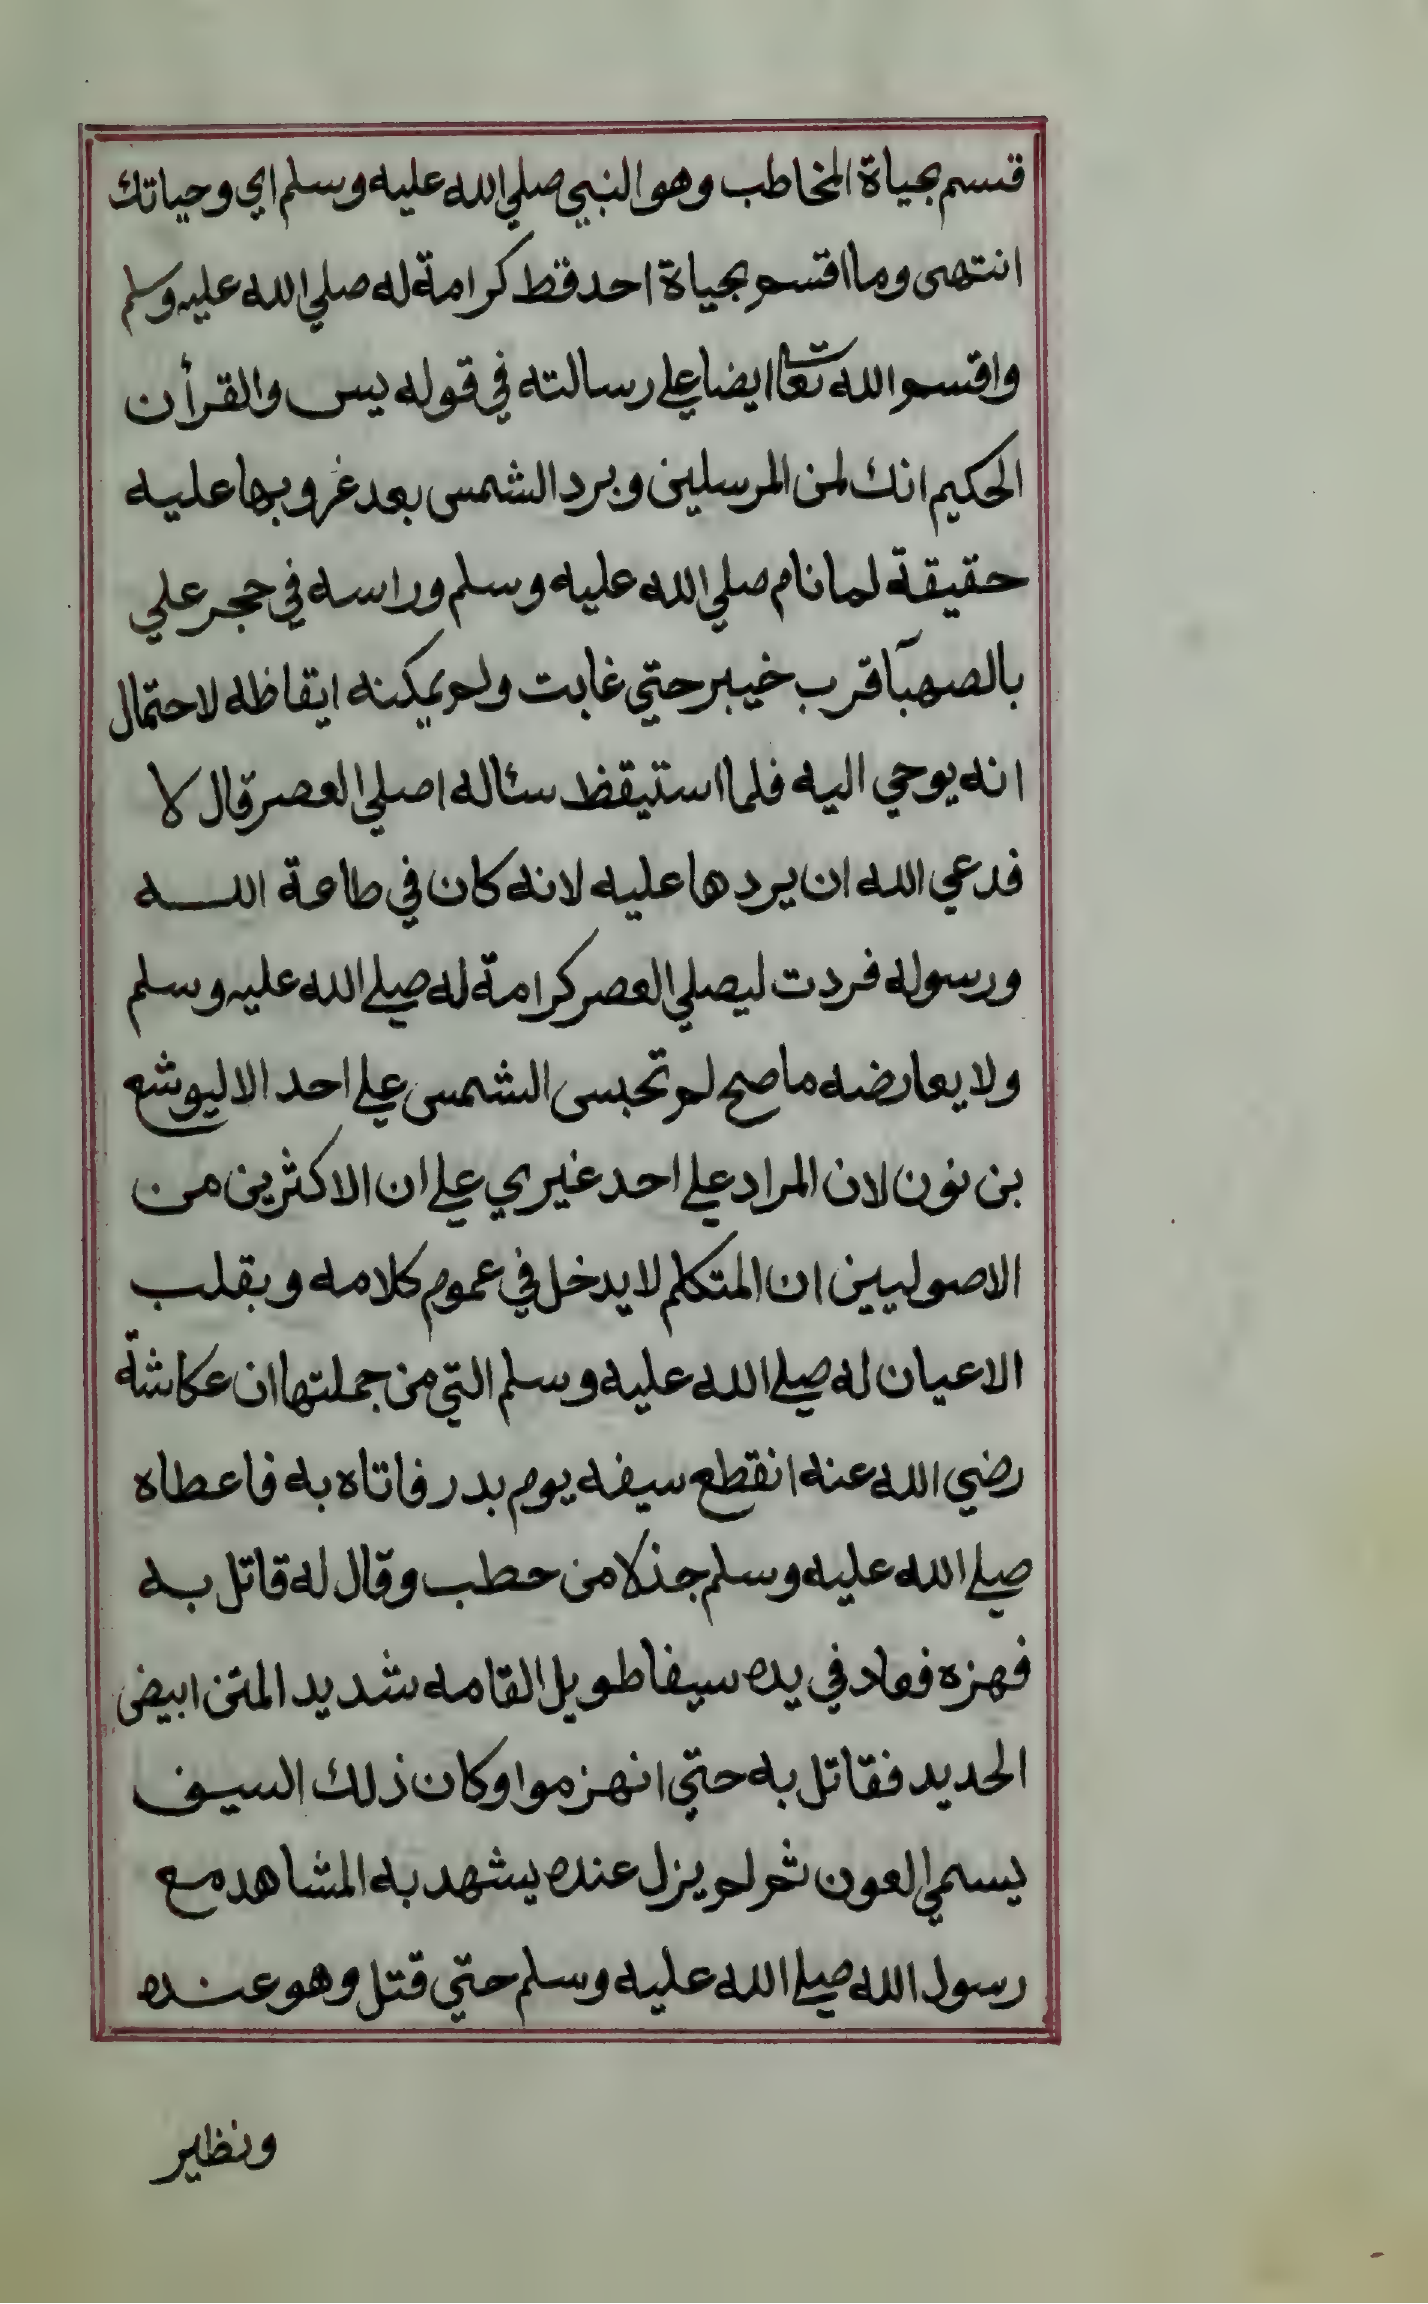 قسم بحياة المخاطب وهو النبي صلي الله عليه وسلم اي وحياتك
انتهى وما اقسم بحياة احد قط كرامة له صلي الله عليه وسلم
واقسم الله تعا ايضا علي رسالته في قوله يس والقرأن
الحكيم انك لمن المرسلين وبرد الشمس بعد غروبها عليه
حقيقة لما نام صلي الله عليه وسلم وراسه في حجر علي
بالصهبآ قرب خيبر حتي غابت ولم يمكنه ايقاظه لاحتمال
انه يوحي اليه فلما استيقظ سئاله اصلي العصر قال لا
فدعي الله ان يردها عليه لانه كان في طاعة الله
ورسوله فردت ليصلي العصر كرامة له صلي الله عليه وسلم
ولا يعارضه ما صح لم تحبس الشمس علي احد الا ليوشع
بن نون لان المراد علي احد غيري علي ان الاكثرين من
الاصوليين ان المتكلم لا يدخل في عموم كلامه وبقلب
الاعيان له صلي الله عليه وسلم التي من جملتها ان عكاشة
رضي الله عنه انقطع سيفه يوم بدر فاتاه به فاعطاه
صلي الله عليه وسلم جذلا من حطب وقال له قاتل به
فهزه فعاد في يده سيفا طويل القامه شديد المتن ابيض
الحديد فقاتل به حتي انهزموا وكان ذلك السيف
يسمي العون ثم لم يزل عنده يشهد به المشاهد مع
رسول الله صلي الله عليه وسلم حتي قتل وهو عنده
ونظير